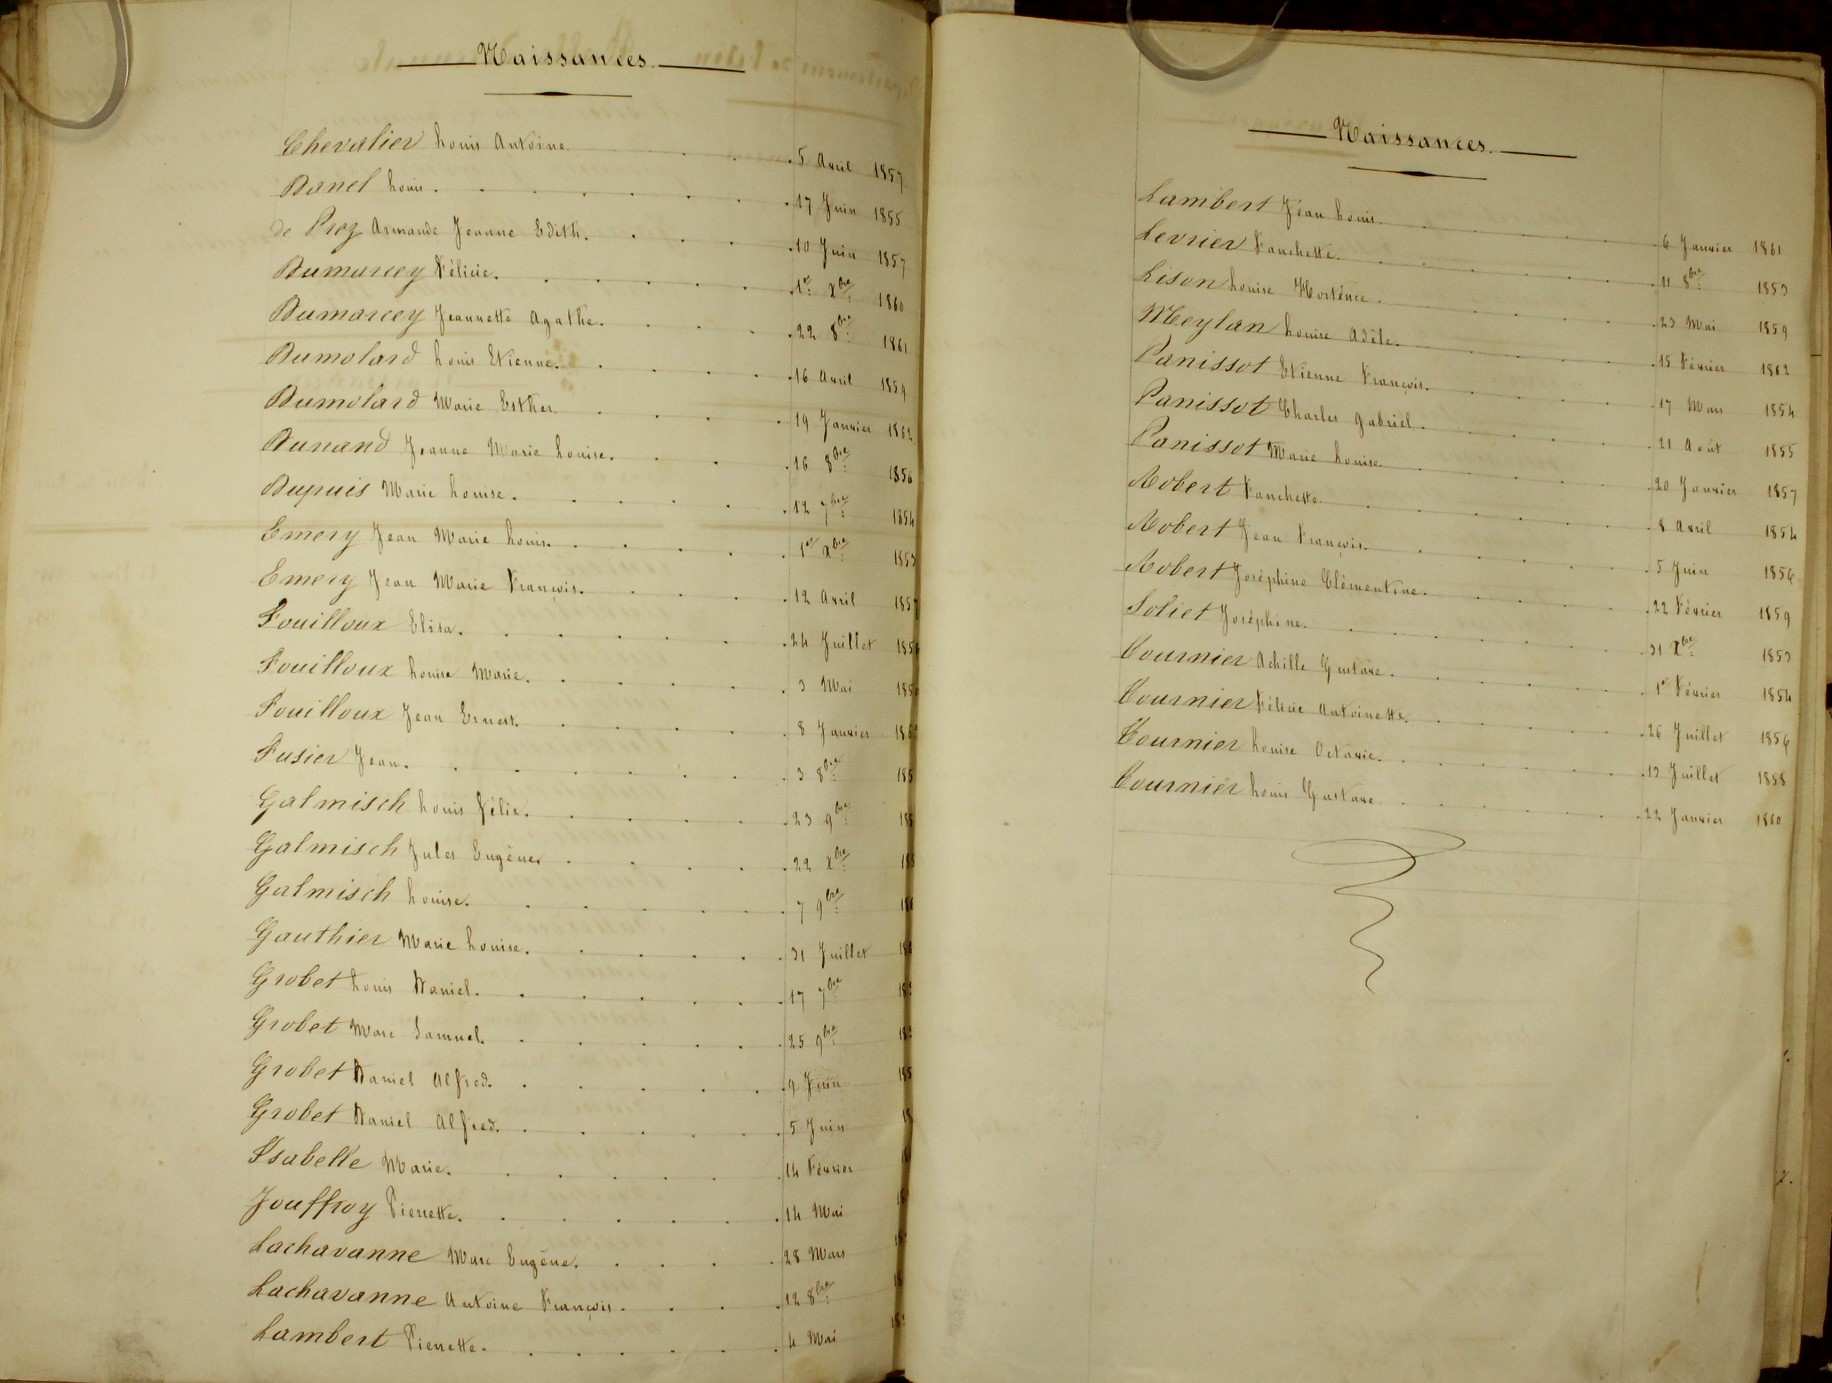 Naissances.
Chevalier Louis Antoine 5 Avril 1857
Danel Louis. 17 Juin 1855
de Prez Armande Jeanne Edith. 10 Juin 1857
Dumarcey Félicie. 1er Xbre 1860
Dumarcey Jeannette Agathe. 22 8bre 1861
Dumolard Louis Etienne. 16 Avril 1859
Dumolard Marie Esther 19 Janvier 1862
Dunand Jeanne Marie Louise. 16 8bre 1856
Dupuis Marie Louise. 12 7bre 1854
Emery Jean Marie Louis. 1er Xbre 1853
Emery Jean Marie François. 12 Avril 1857
Fouilloux Elisa. 24 Juillet
Fouilloux Louise Marie. 3 Mai
Fouilloux Jean Ernest. 8 Janvier
Fusier Jean. 3 8bre
Galmisch Louis Félix. 23 9bre
Galmisch Jules Eugène. 22 Xbre
Galmisch Louise. 7 9bre
Gauthier Marie Louise. 31 Juillet
Grobet Louis Daniel. 17 7bre
Grobet Marc Samuel. 25 9bre
Grobet Daniel Alfred. 9 Juin
Grobet Daniel Alfred. 5 Juin
Isabelle Marie. 14 Février
Jouffroy Pierrette. 14 Mai
Lachavanne Marc Eugène. 28 Mars
Lachavanne Antoine François. 12 8bre
Lambert Pierrette. 4 Mai
Naissances.
Lambert Jean Louis. 6 Janvier 1861
Levrier Fanchette. 11 8bre 1853
Lison Louise Hortence. 23 Mai 1859
Meylan Louise Adèle. 15 Février 1862
Panissot Etienne François. 17 Mars 1854
Panissot Charles Gabriel. 21 Août 1855
Panissot Marie Louise. 20 Janvier 1857
Robert Fanchette. 8 Avril 1854
Robert Jean François. 5 Juin 1856
Robert Joséphine Clémentine. 22 Février 1859
Soliet Joséphine. 31 Xbre 1853
Tournier Achille Gustave. 1er Février 1854
Tournier Félicie Antoinette. 26 Juillet 1856
Tournier Louise Octavie. 13 Juillet 1858
Tournier Louis Gustave 22 Janvier 1860